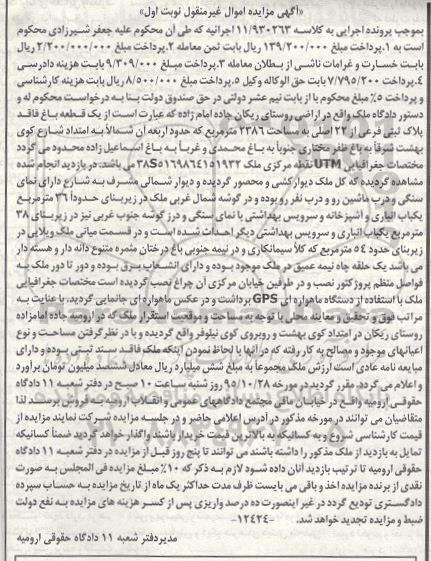 «آگهی مزایده اموال غیرمنقول نوبت اول»
بموجب پرونده اجرایی به کلاسه ۱۱/۹۳۰۲۶۳ اجرائیه که طی آن محکوم علیه جعفر شیرزادی محکوم
است به ۱.پرداخت مبلغ ۱۳۹/۲۰۰/۰۰۰ ریال بابت ثمن معامله ۲.پرداخت مبلغ ۲/۲۰۰/۰۰۰ ریال
بابت خسارت و غرامات ناشی از بطلان معامله ۳.پرداخت مبلغ ۹/۳۰۹/۰۰۰ بابت هزینه دادرسی
۴.پرداخت ۷/۷۹۵/۲۰۰ بابت حق الوکاله وکیل ۵.پرداخت مبلغ ۸/۵۰۰/۰۰۰ ریال بابت هزینه کارشناسی
و پرداخت ۵٪ مبلغ محکوم با از بابت نیم عشر دولتی در حق صندوق دولت بنا به درخواست محکوم له و
دستور دادگاه ملک واقع در اراضی روستای ریکان جاده امام زاده که عبارت است از یک قطعه باغ فاقد
پلاک ثبتی فرعی از ۲۲ اصلی به مساحت ۲۳۸۶ مترمربع که حدود اربعه آن شمالاً به امتداد شارع کوی
بهشت شرقاً به باغ ظفر مختاری جنوباً به باغ محمدی و غرباً به باغ اسماعیل زاده محدود می گردد
مختصات جغرافیایی UTM نقطه مرکزی ملک 38S۵۱۶۹۸۶۴۱۵۱۹۳۲ می باشد. در بازدید انجام شده
مشاهده گردیده که کل ملک دیوارکشی و محصور گردیده و دیوار شمالی مشرف به شارع دارای نمای
سنگی و درب ماشین رو و درب نفر رو بوده و در گوشه شمال غربی ملک در زیربنای حدوداً ۳۶ مترمربع
یکباب انباری و آشپزخانه و سرویس بهداشتی با نمای سنگی و درز گوشه جنوب غربی نیز در زیربنای ۳۸
مترمربع یکباب انباری و سرویس بهداشتی دیگر احداث شده است و در قسمت میانی ملک ویلایی در
زیربنای حدود ۵۴ مترمربع که کلاً سیمانکاری و در نیمه جنوبی باغ درختان مثمره متنوع دانه دار و هسته دار
می باشد یک حلقه چاه نیمه عمیق در ملک موجود بوده و دارای انشعاب برق بوده و دور تا دور ملک به
فواصل منظم پروژکتور نصب و در طرفین خیابان مرکزی آن چراغ نصب گردیده است مختصات جغرافیایی
ملک با استفاده از دستگاه ماهواره ای GPS برداشت و در عکس ماهواره ای جانمایی گردید. با عنایت به
مراتب فوق و تحقیق و معاینه محلی با توجه به مساحت و موقعیت استقرار ملک که در ارومیه جاده امامزاده
روستای ریکان در امتداد کوی بهشت و روبروی کوی نیلوفر واقع گردیده و با در نظر گرفتن مساحت و نوع
اعیانهای موجود و مصالح به کار رفته که در آنها با لحاظ نمودن اینکه ملک فاقد سند ثبتی بوده و دارای
مبایعه نامه عادی است ارزش ملک مجموعاً به مبلغ شش میلیارد ریال معادل ششصد میلیون تومان برآورد
و اعلام می گردد. مقرر گردید در مورخه ۹۵/۱۰/۲۸ روز سه شنبه ساعت ۱۰ صبح در دفتر شعبه ۱۱ دادگاه
حقوقی ارومیه واقع در خیابان مافی مجتمع دادگاههای عمومی و انقلاب ارومیه به فروش برسد. لذا
متقاضیان می توانند در مورخه مذکور در آدرس اعلامی حاضر و در جلسه مزایده شرکت نمایند مزایده از
قیمت کارشناسی شروع و به کسانیکه به بالاترین قیمت خریدار باشند واگذار خواهد گردید ضمناً کسانیکه
تمایل به بازدید از ملک مذکور را داشته باشند می توانند تا پنج روز قبل از مزایده در دفتر شعبه ۱۱ دادگاه
حقوقی ارومیه تا ترتیب بازدید آنان داده شود لازم به ذکر که ۱۰٪ مبلغ مزایده فی المجلس به صورت
نقدی از برنده مزایده اخذ و باقی می بایست ظرف مدت حداکثر یک ماه از تاریخ مزایده به حساب سپرده
دادگستری تودیع گردد در غیر اینصورت ده درصد واریزی پس از کسر هزینه های مزایده به نفع دولت
ضبط و مزایده تجدید خواهد شد. -۱۲۴۲۴-
مدیردفتر شعبه ۱۱ دادگاه حقوقی ارومیه